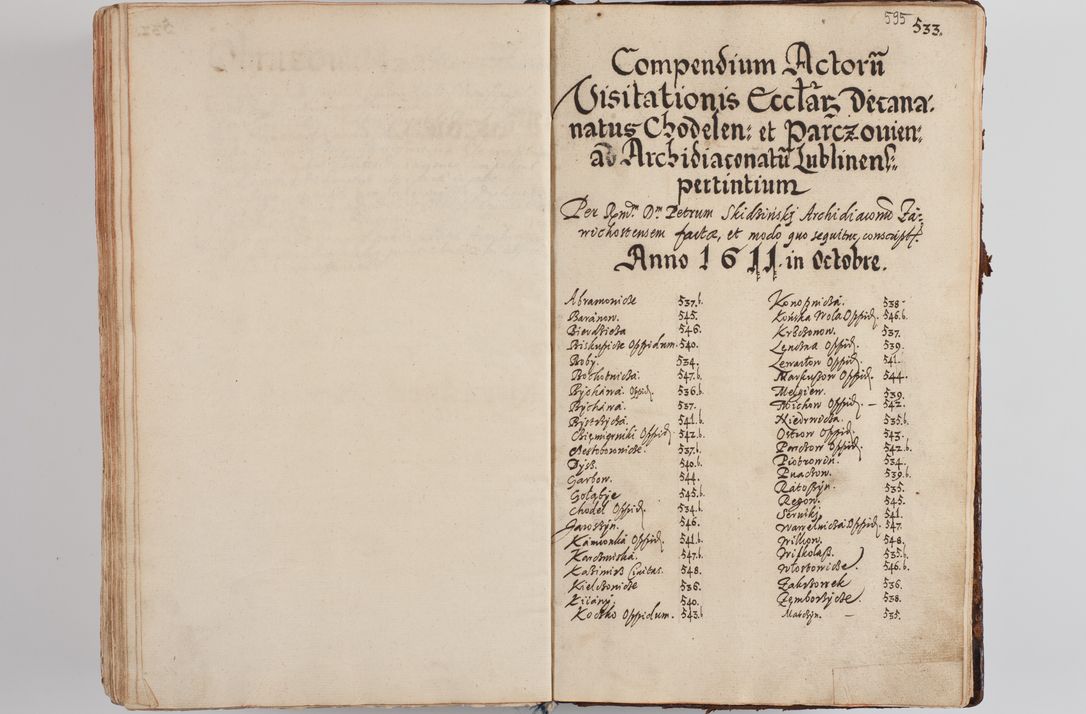 595
533.
Compendium Actorũ
Visitationis Eccłar̃ Decana:
natus Chodelen: et Parczouien:
ad Archidiaconatũ Lublinens:
pertintium
Per Rm̃ Dm̃ Petrum Skidzinskj Archidiaconũ Za:
wichostensem factæ, et modo quo sequitur, conscript.
Anno 1611. in Octobre.
Abramowicze 537.b.
Baranow. 545.
Bierdzieża 546.
Biskupicze Oppidum. 540.
Boby. 534.
Bochotnicza. 547.b.
Bÿchawa. Oppid. 536.b.
Bÿchawa. 537.
Bÿstrzÿcza. 541.b.
Cziemierniki Oppid. 542.b.
Czestoborowicze. 537.b.
Dÿsz. 540.b.
Garbow. 544.
Gołąbie 545.b.
Chodel Oppid. 534.b.
Jaroszÿn. 546.
Kamionka Oppid. 541.b.
Karczmiska. 547.b.
Kazimirz Civitas. 548.
Kielczowicze 536.
Kiianÿ. 540.
Koczko Oppidum. 543.b.
Konopnicza. 538.
Końska Wola Oppid. 546.b.
Krzczonow. 537.
Lenczna Oppid. 539.
Lewartow Oppid. 541.
Markuszow Oppid. 544.
Melgiew. 539.
Michow Oppid. — 542.
Niedrwicza. 535.b.
Ostrow Oppid. 543.
Parczow Oppid. 542.b.
Piotrowin. 534.
Puachow. 539.b.
Ratoszÿn. 535.
Regow. 545.
Serniki. 541.
Wawelnicza Oppid. 547.
Wilkow. 548.
Wilkolasz. 535.b.
Wlostowicze. 546.b.
Zakrzowek 536.
Zemborzÿcze. 538.
Matczÿn. — 535.